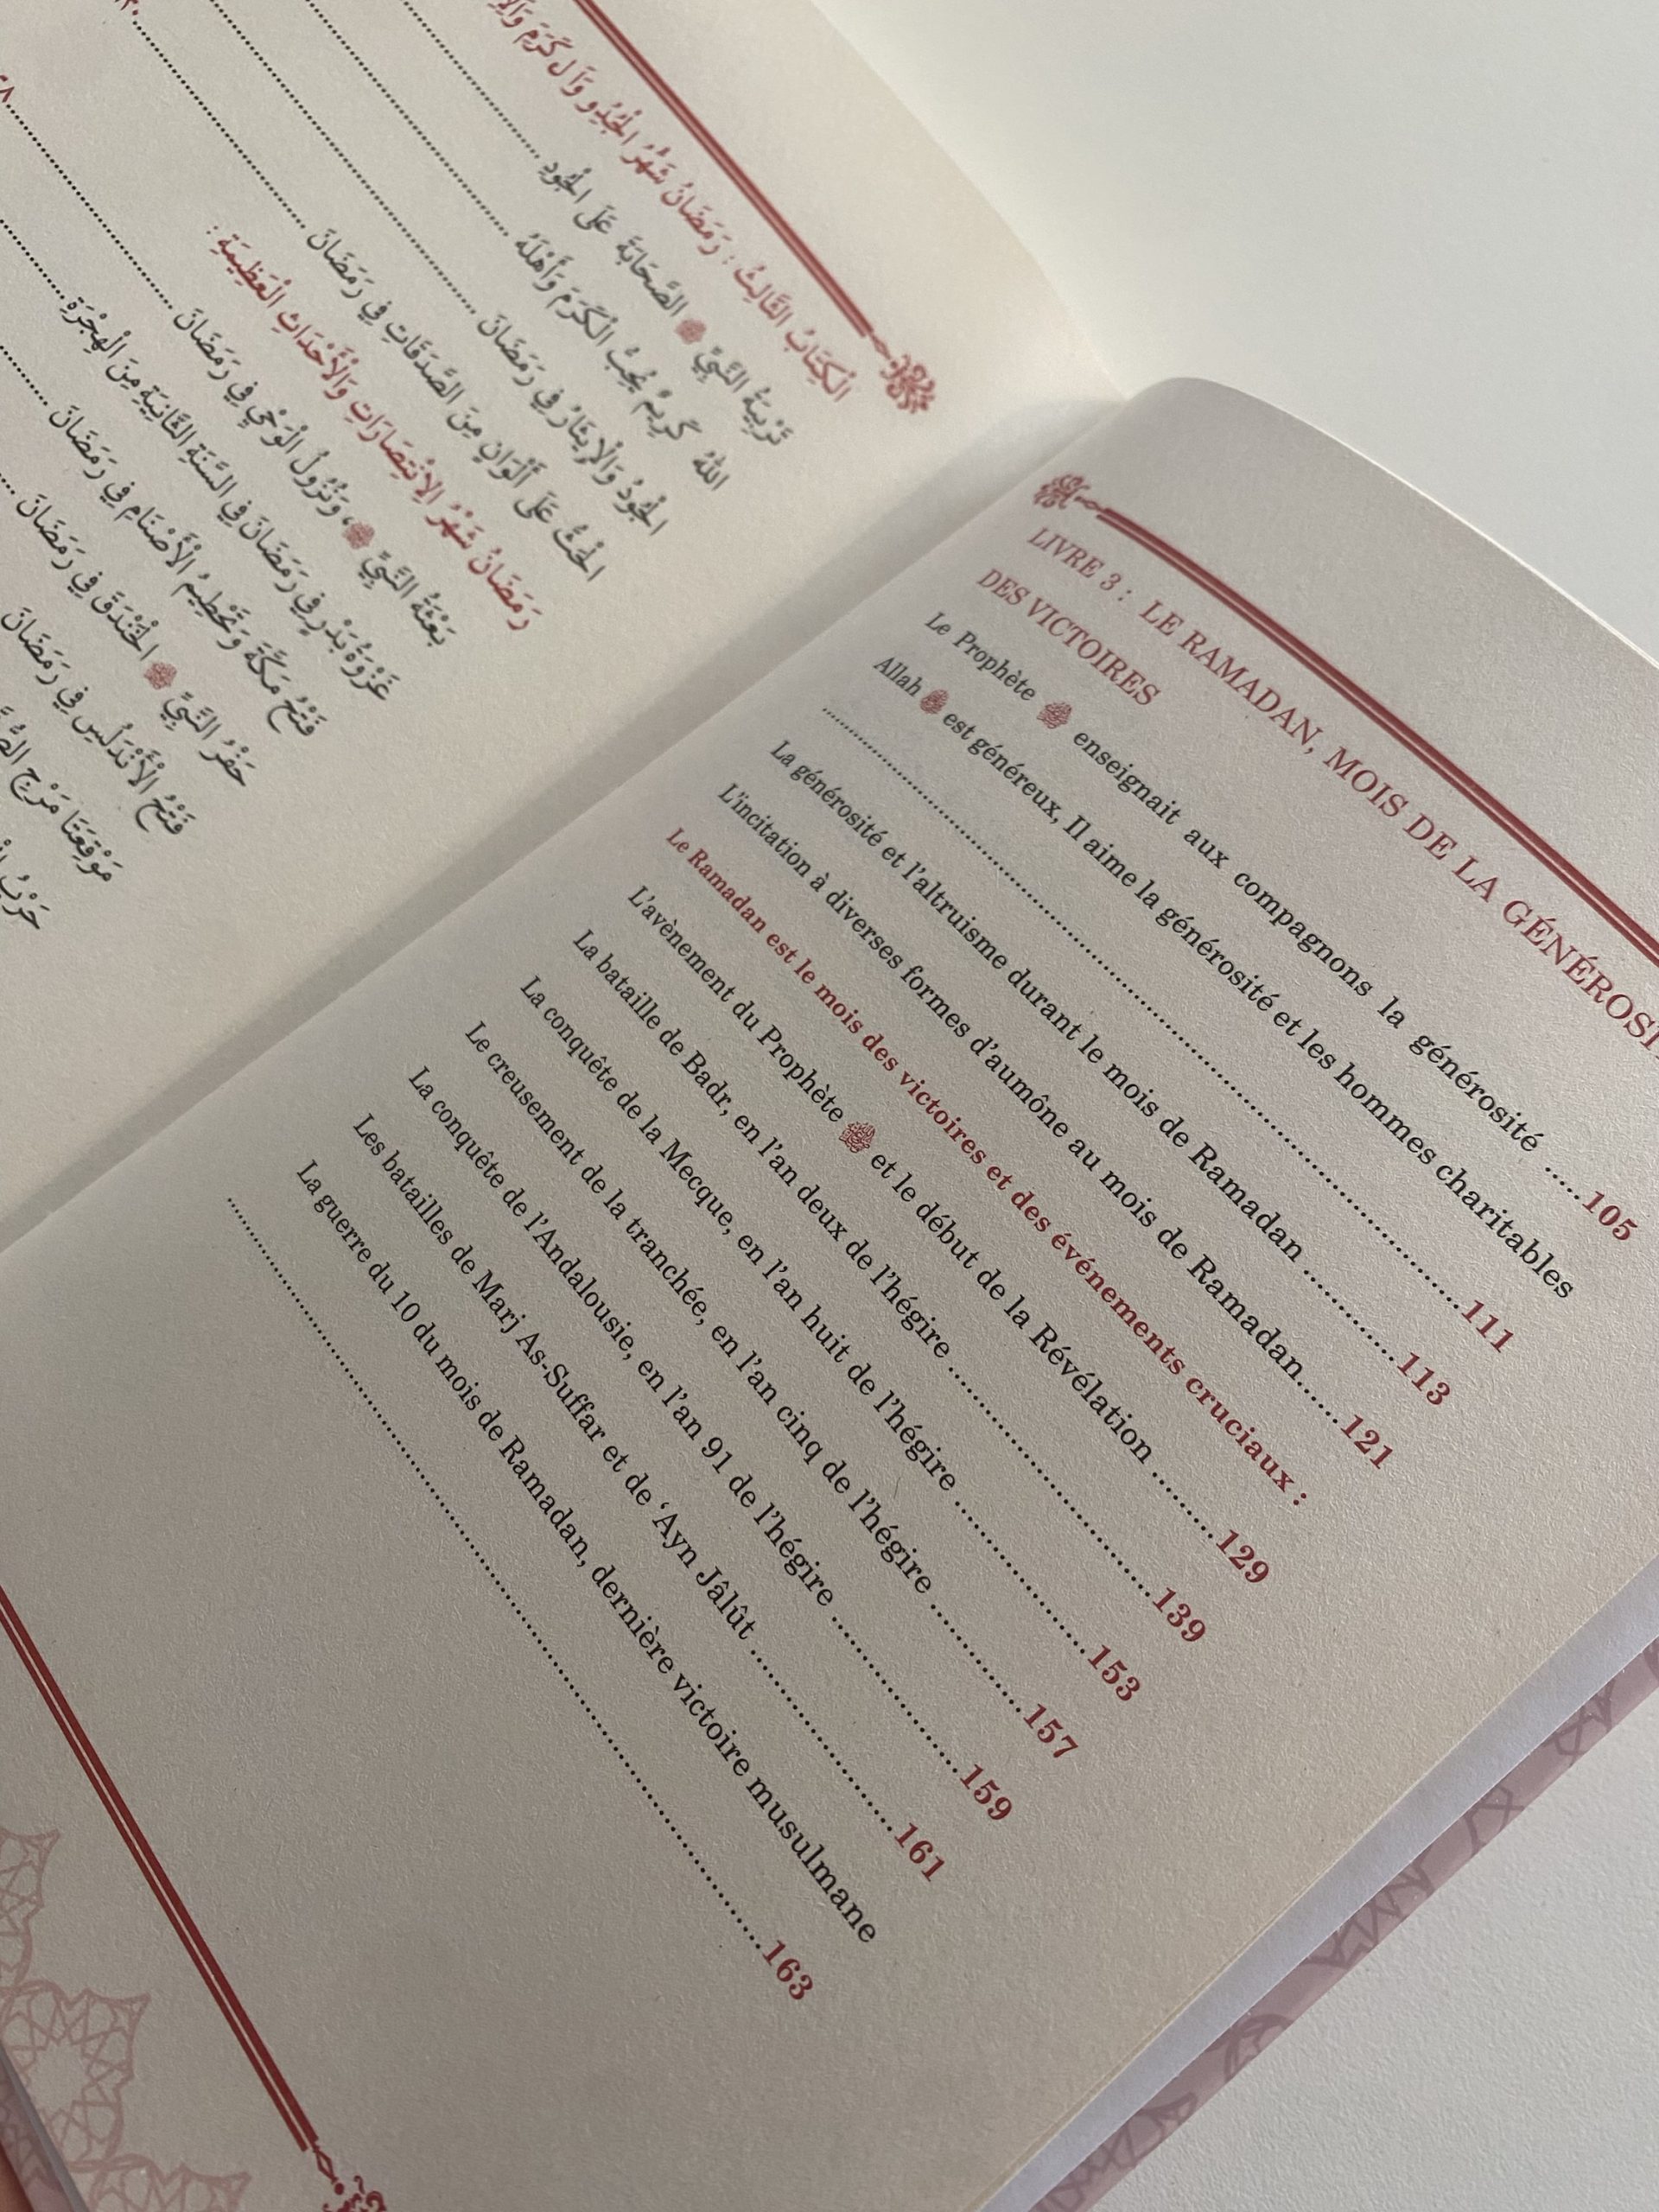 الْكِتَابُ الثَّالِثُ : رَمَضَانُ شَهْرُ الْجُودِ وَالْكَرَمِ
تَرْبِيَةُ النَّبِيِّ ﷺ الصَّحَابَةَ عَلَى الْجُودِ
اللهُ كَرِيمٌ يُحِبُّ الْكَرَمَ وَأَهْلَهُ
الْجُودُ وَالْإِيثَارُ فِي رَمَضَانَ
الْحَثُّ عَلَى أَلْوَانٍ مِنَ الصَّدَقَاتِ فِي رَمَضَانَ
رَمَضَانُ شَهْرُ الِانْتِصَارَاتِ وَالْأَحْدَاثِ الْعَظِيمَةِ :
بَعْثَةُ النَّبِيِّ ﷺ، وَنُزُولُ الْوَحْيِ فِي رَمَضَانَ
غَزْوَةُ بَدْرٍ فِي رَمَضَانَ فِي السَّنَةِ الثَّانِيَةِ مِنَ الْهِجْرَةِ
فَتْحُ مَكَّةَ وَتَحْطِيمُ الْأَصْنَامِ فِي رَمَضَانَ
حَفْرُ النَّبِيِّ ﷺ الْخَنْدَقَ فِي رَمَضَانَ
فَتْحُ الْأَنْدَلُسِ فِي رَمَضَانَ
مَوْقِعَتَا مَرْجِ
حَرْبُ
LIVRE 3 : LE RAMADAN, MOIS DE LA GÉNÉROSI
DES VICTOIRES
Le Prophète ﷺ enseignait aux compagnons la générosité ..... 105
Allah ﷻ est généreux, Il aime la générosité et les hommes charitables
..... 111
La générosité et l'altruisme durant le mois de Ramadan ..... 113
L'incitation à diverses formes d'aumône au mois de Ramadan ..... 121
Le Ramadan est le mois des victoires et des événements cruciaux :
L'avènement du Prophète ﷺ et le début de la Révélation ..... 129
La bataille de Badr, en l'an deux de l'hégire ..... 139
La conquête de la Mecque, en l'an huit de l'hégire ..... 153
Le creusement de la tranchée, en l'an cinq de l'hégire ..... 157
La conquête de l'Andalousie, en l'an 91 de l'hégire ..... 159
Les batailles de Marj As-Suffar et de 'Ayn Jâlût ..... 161
La guerre du 10 du mois de Ramadan, dernière victoire musulmane
..... 163